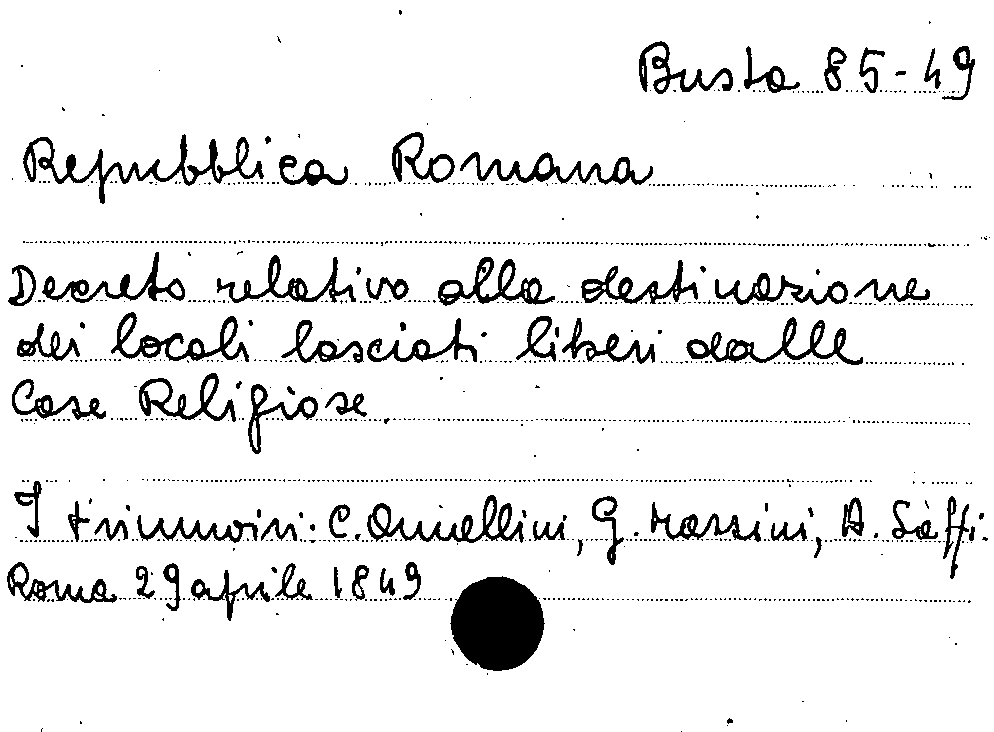 Busta 85-49
Repubblica Romana
Decreto relativo alla destinazione
dei locali lasciati liberi dalle
Case Religiose.
I triumviri: C. Armellini, G. Mazzini, A. Saffi.
Roma 29 aprile 1849